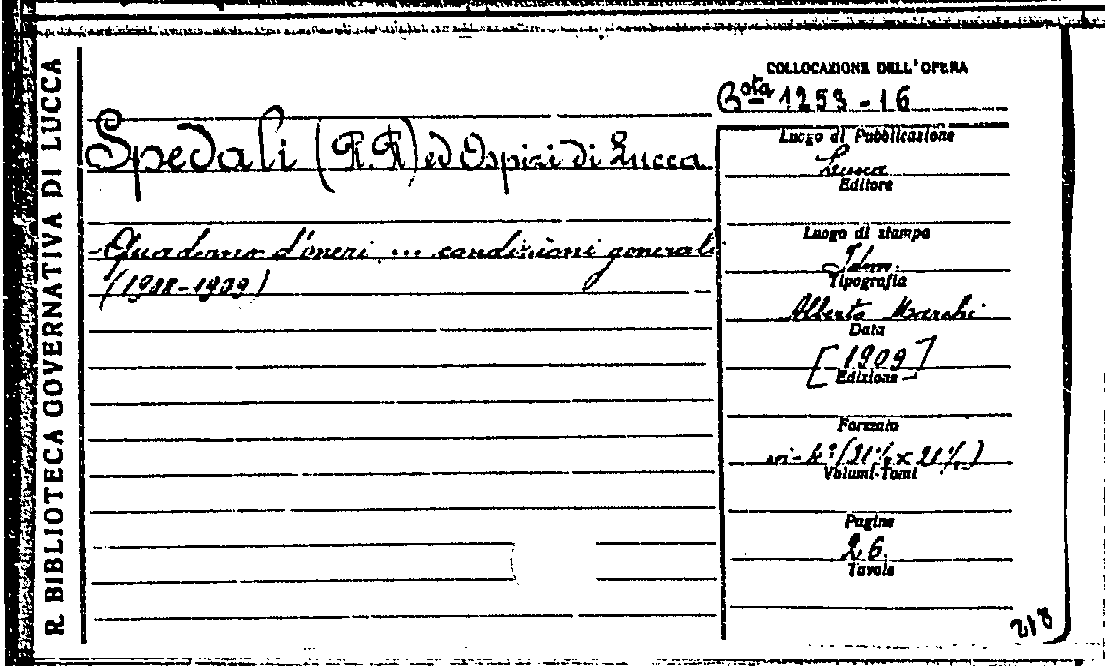 R. BIBLIOTECA GOVERNATIVA DI LUCCA
COLLOCAZIONE DELL'OPERA
Bᵒᵗᵃ 1253-16
Spedali (R.R) ed Ospizi di Lucca
Quaderno d'oneri ... condizioni generali
(1908-1909)
Luogo di Pubblicazione
Lucca
Editore
Luogo di stampa
Idem.
Tipografia
Alberto Marchi
Data
[1909]
Edizione
Formato
in-4°
Volumi-Tomi
Pagine
26.
Tavole
218